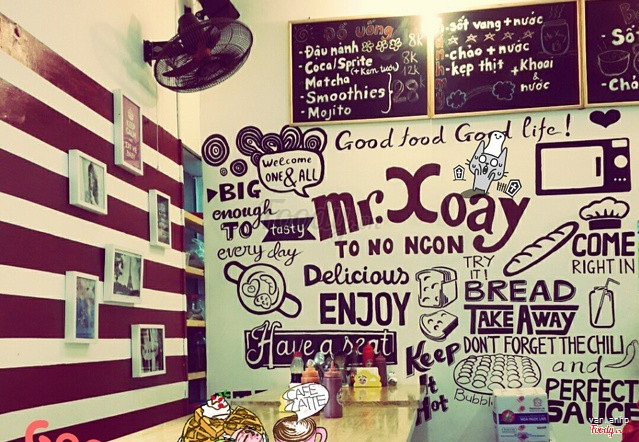 Đồ uống
-Đậu nành 8k
-Coca/Sprite 8k
(+Kem tươi) 12k
-Matcha
-Smoothies
-Mojito
28
-sốt vang + nước
-cháo + nước
-kẹp thịt + Khoai & nước
Good food Good life!
Welcome
ONE & ALL
BIG
enough
TO tasty
every day
Mr. Xoay
TO NO NGON
Delicious
ENJOY
Have a seat
TRY
IT!
BREAD
TAKE AWAY
DON'T FORGET THE CHILI
and
PERFECT
SAUCE
COME
RIGHT IN
Keep
It
Hot
CAFE
LATTE
vananhp
foody.vn